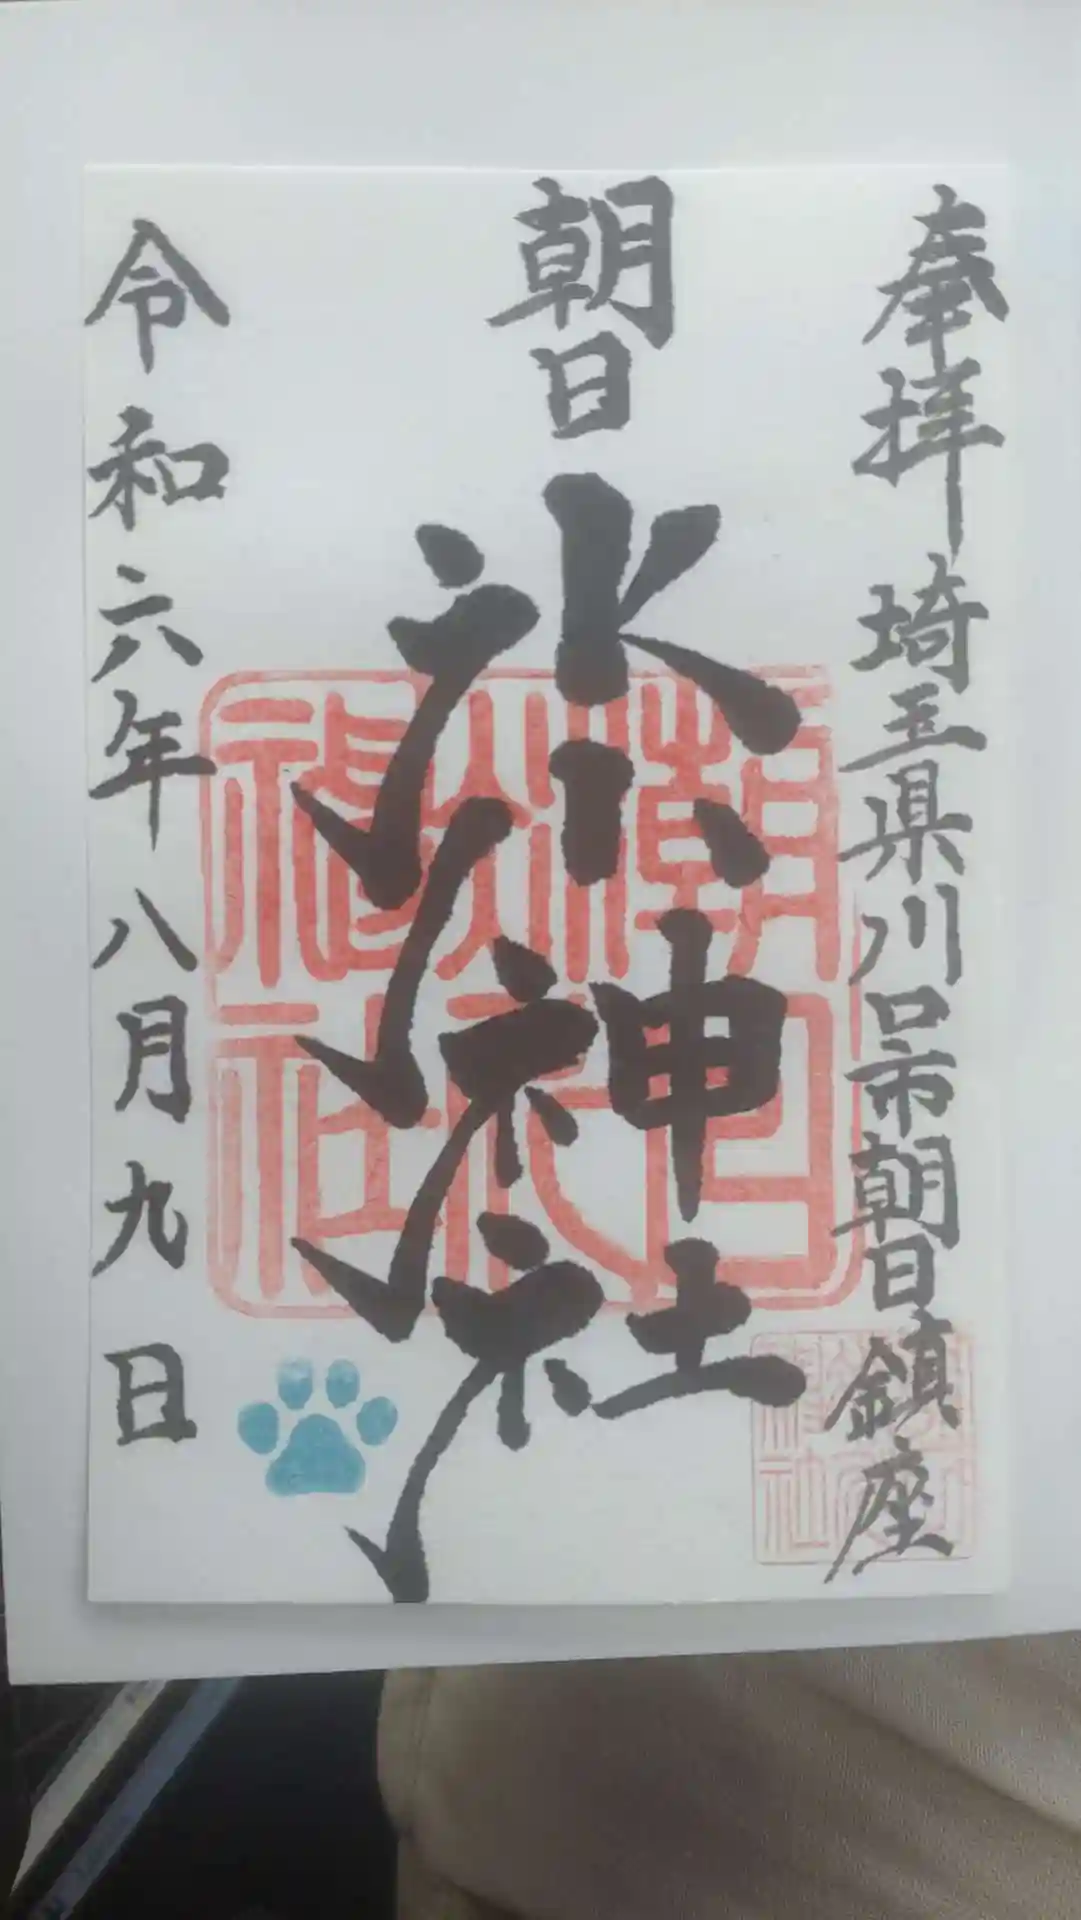 奉拝 埼玉県川口市朝日鎮座
朝日 氷川神社
令和六年 八月九日